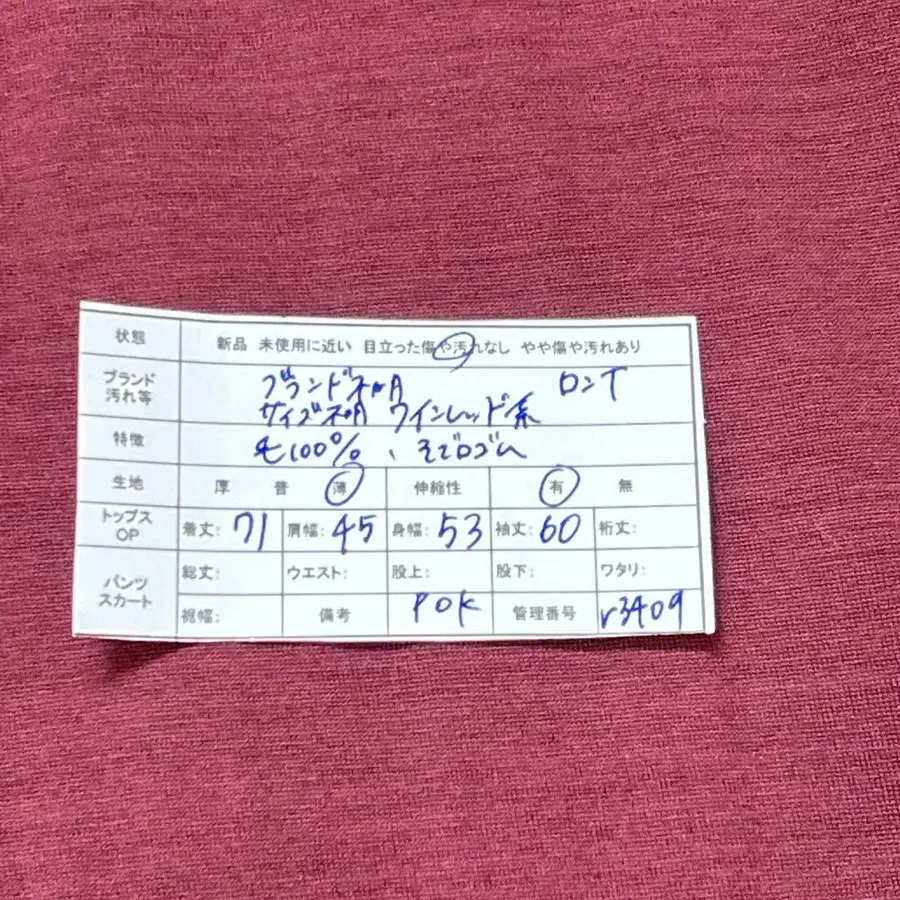 状態 新品 未使用に近い 目立った傷や汚れなし やや傷や汚れあり
ブランド ブランド不明 ロンT
汚れ等 サイズ不明 ワインレッド系
特徴 毛100%、そでロゴム
生地 厚 普 薄 伸縮性 有 無
トップス
OP 着丈: 71 肩幅: 45 身幅: 53 袖丈: 60 裄丈:
パンツ
スカート 総丈: ウエスト: 股上: 股下: ワタリ:
裾幅: 備考 POK 管理番号 r3409